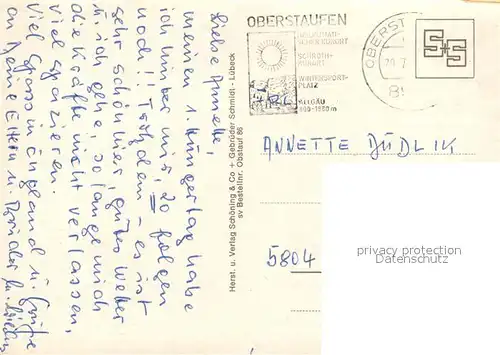 Liebe Annette,
meinen 1. Hungertag habe
ich hinter mir, 20 folgen
noch!! Trotzdem – es ist
sehr schön hier, gutes Wetter
u. ich gehe, so lange mich
die Kräfte nicht verlassen,
viel spazieren.
Viel Spass in England u. Grüße
an Deine Eltern u. Brüder
Herst. u. Verlag Schöning & Co + Gebrüder Schmidt - Lübeck
sv Bestellnr. Obstauf 86
OBERSTAUFEN
HEILKLIMA-
SCHROTH-
KURORT
WINTERSPORT-
PLATZ
ALLGÄU
OBERST
89
S+S
ANNETTE BÜDLIK
5804
privacy protection
Datenschutz